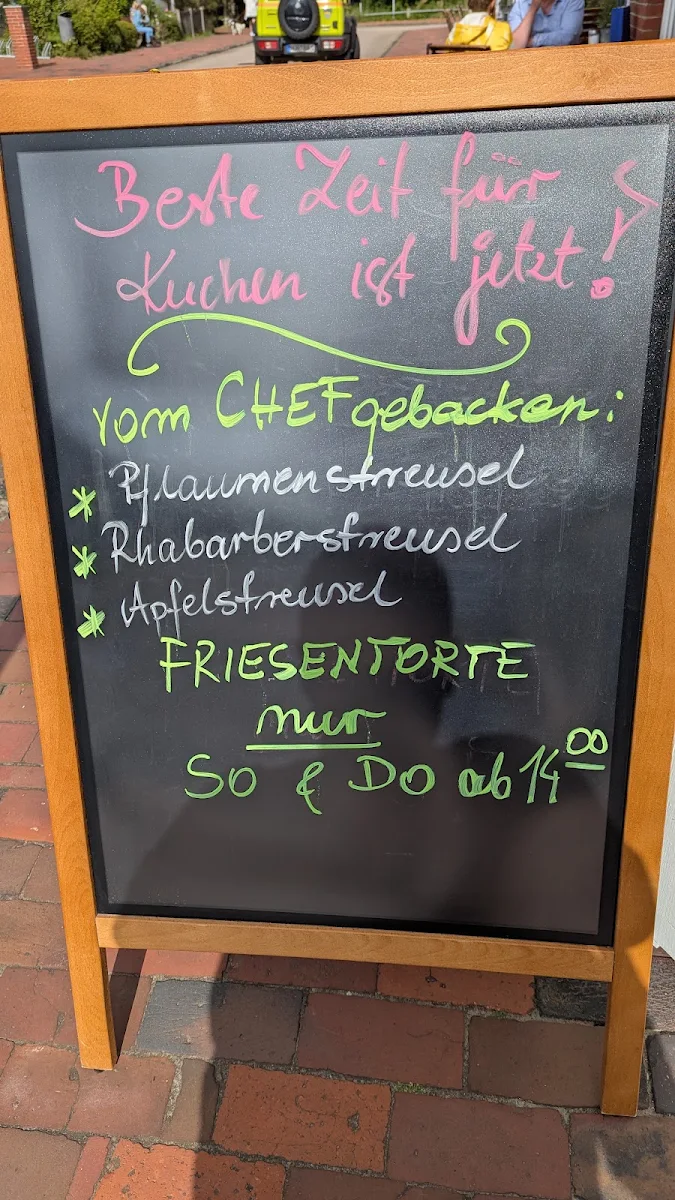 Beste Zeit für
Kuchen ist jetzt!
vom CHEF gebacken:
* Pflaumenstreusel
* Rhabarberstreusel
* Apfelstreusel
FRIESENTORTE
nur
SO & DO ab 14 00